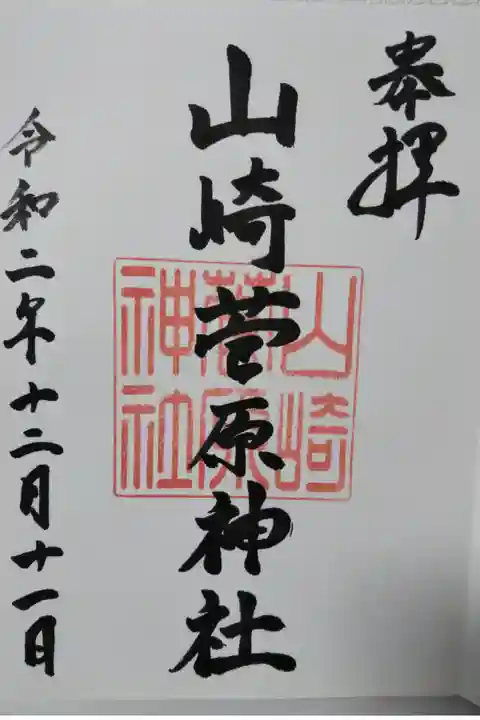 奉拝
山崎菅原神社
山崎
菅原
神社
令和二年十二月十一日